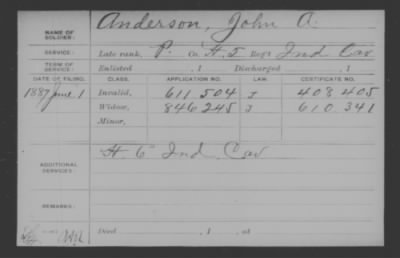 NAME OF SOLDIER: Anderson, John A.
SERVICE: Late rank, P. Co. H. 5 Reg't Ind Cav
TERM OF SERVICE: Enlisted , 1 Discharged , 1
DATE OF FILING. CLASS. APPLICATION NO. LAW. CERTIFICATE NO.
1887 June 1 Invalid, 611 504 J 408 405
Widow, 846 245 J 610 341
Minor,
ADDITIONAL SERVICES: H. 6" Ind Cav
REMARKS:
Died , 1 , at